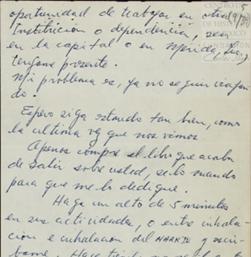 oportunidad de trabajar en otra
institución o dependencia, sea
en la capital o en Mérida,
téngame presente.
Mi problema es, ya no seguir viajan
do.
Espero siga estando tan bien, como
la última vez que nos vimos.
Apenas compre el libro que acaba
de salir sobre usted, se lo mando
para que me lo dedique.
Haga un alto de 5 minutos
en sus actividades, o entre inhala-
ción e inhalación del y